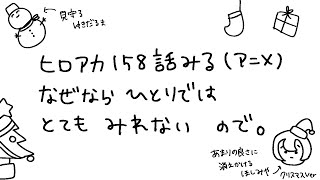 見守る
ゆきだるま
ヒロアカ158話みる(アニメ)
なぜなら ひとりでは
とても みれない ので。
あまりの良さに
消えかける
ほしみや
クリスマスver